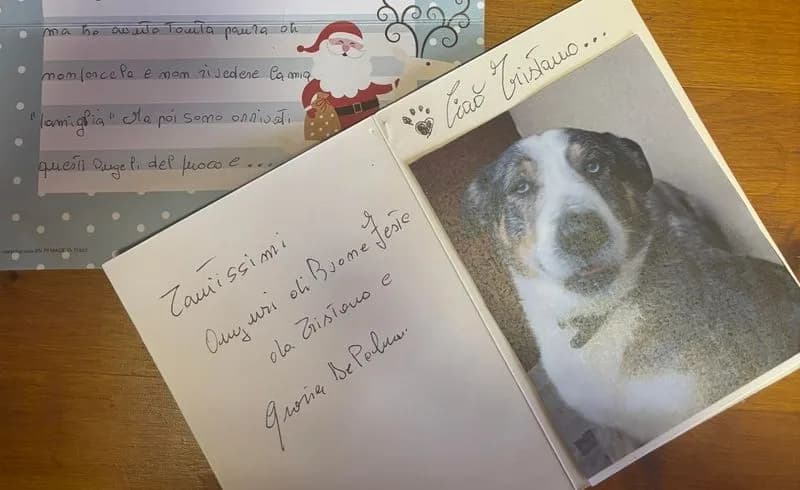 ma ho avuto tanta paura di
non farcela e non rivedere la mia
"famiglia" Ma poi sono arrivati
questi angeli del fuoco e ...
Ciao Tristano...
Tantissimi
Auguri di Buone Feste
da Tristano e
De Palma.